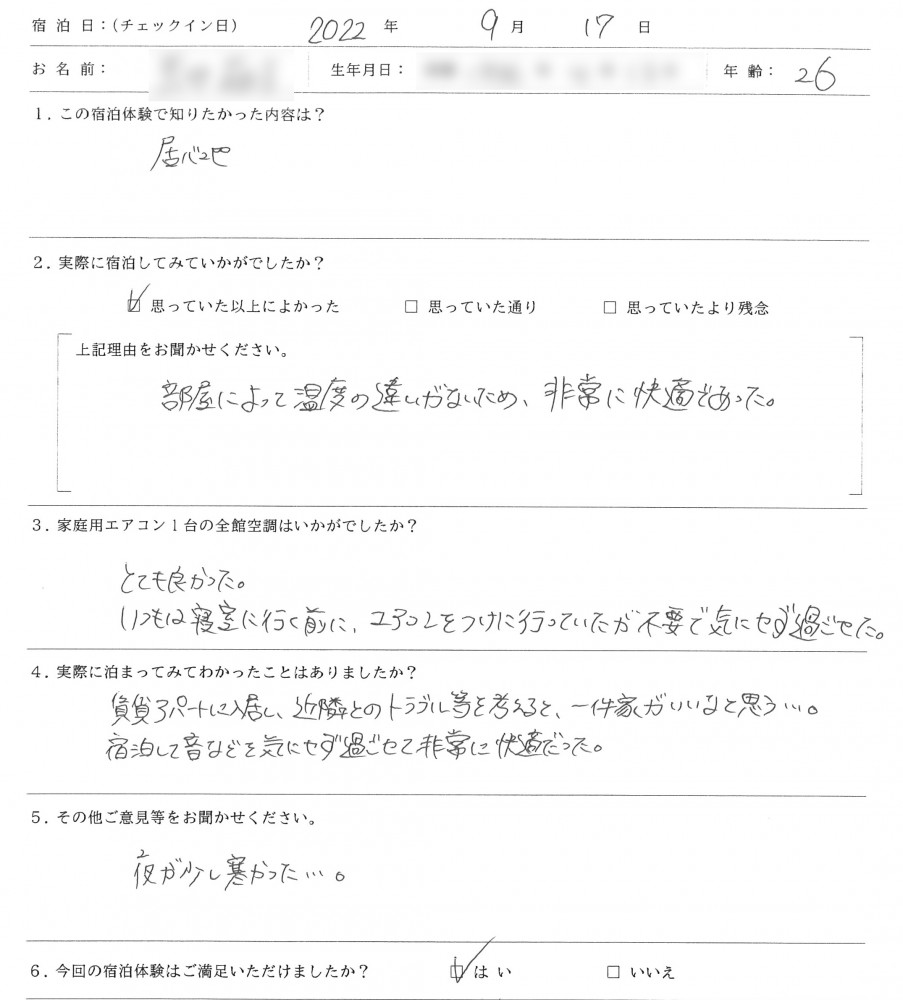 宿泊日：(チェックイン日) 2022 年 9 月 17 日
お名前： 生年月日： 年齢： 26
1. この宿泊体験で知りたかった内容は？
居心地
2. 実際に宿泊してみていかがでしたか？
☑ 思っていた以上によかった □ 思っていた通り □ 思っていたより残念
上記理由をお聞かせください。
部屋によって温度の違いがないため、非常に快適であった。
3. 家庭用エアコン1台の全館空調はいかがでしたか？
とても良かった。
いつもは寝室に行く前に、エアコンをつけに行っていたが不要で気にせず過ごせた。
4. 実際に泊まってみてわかったことはありましたか？
賃貸アパートに入居し、近隣とのトラブル等を考えると、一件家がいいなと思う…。
宿泊して音などを気にせず過ごせて非常に快適だった。
5. その他ご意見等をお聞かせください。
夜が少し寒かった…。
6. 今回の宿泊体験はご満足いただけましたか？ ☑ はい □ いいえ